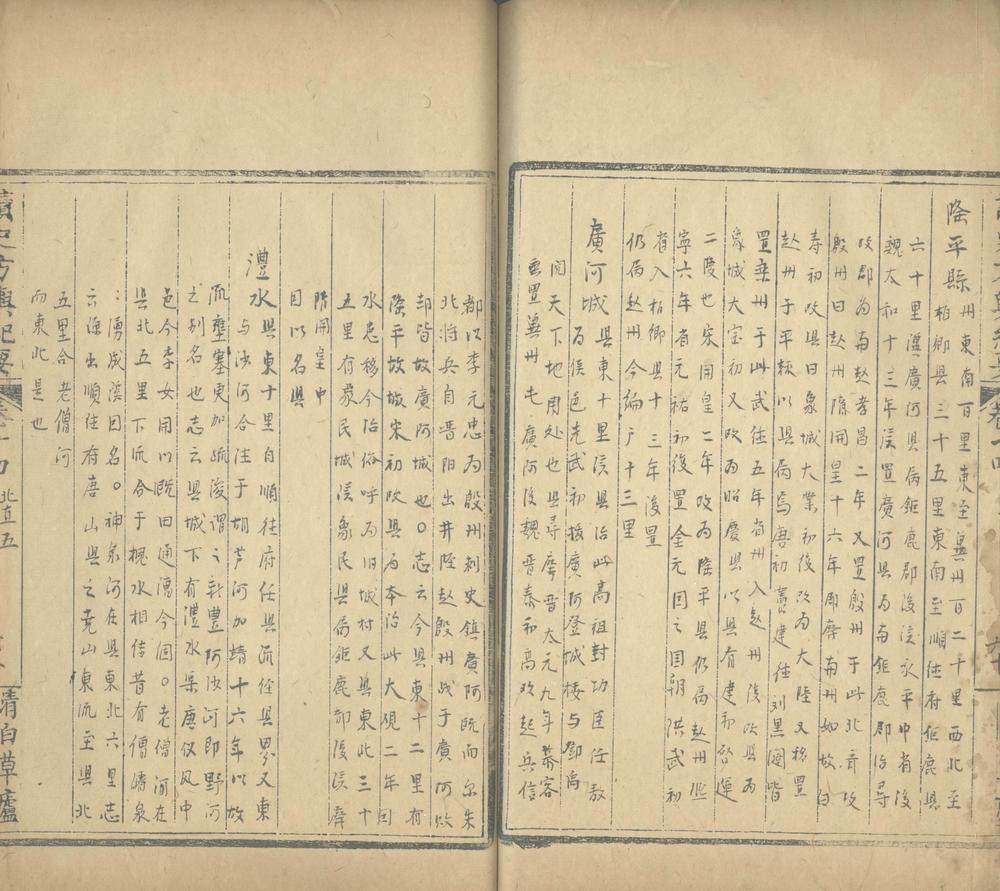 隆平縣州東南百里東至冀州百二十里西北至
柏鄉縣三十五里東南至順徃府鉅鹿縣
六十里漢廣河縣病鉅鹿郡後漢永平中省後
魏太和十三年渓置廣河縣為南鉅鹿郡治尋
改郡為南赵孝昌二年又置殷州于此北斉改
殷州曰赵州隋開皇十六年即廢南州如故白
寿初改縣曰象城大業初後改為大陸又移置
赵州于平棘以縣病焉唐初
置欒州于此武徃五年省州入赵州後改縣為
象城大宝初又改為昭慶縣以縣有建初啓運
二陵也宋開皇二年改為隆平縣仍局赵州熈
寧六年省元祐初復置金元因之国朝洪武初
省入柏鄉縣十三年後置
仍局赵州今編户十三里
廣河城縣東十里渓縣治此高祖封功臣任敖
為侯邑光武初抜廣阿登城楼与鄧禹
閲天下地用处也縣尋廢晋太元九年慕容
垂置冀州屯廣河後魏晋泰和高欢起兵信
都以李元忠为殷州刺史镇廣阿既而尔朱
北将兵自晋阳出井陘赵殷州战于廣阿敗
却皆故廣阿城也〇志云今縣東十二里有
隆平故城宋初改縣为本治此大观二年囙
水患移今治俗呼为旧城村又縣東北三十
五里有象民城渓象民縣局鉅鹿郡後渓廢
隋開皇中
因以名縣
澧水縣東十里自順徃府任縣流徑縣界又東
与沙河合注于胡芦河加靖十六年以故
流壅塞更加疏浚謂之新豐河汝河即野河
之别名也志云縣城下有澧水渠唐仪风中
邑令李女用以既田通漕今涸。老僧河在
縣北五里下流合于槐水相传昔有僧濤泉
：湧成渓因名。神泉河在縣東北六里志
云源出順徃府唐山縣之尭山東流至縣北
五里合老僧河
而東北是也
讀史方輿紀要
北直五
清白草廬